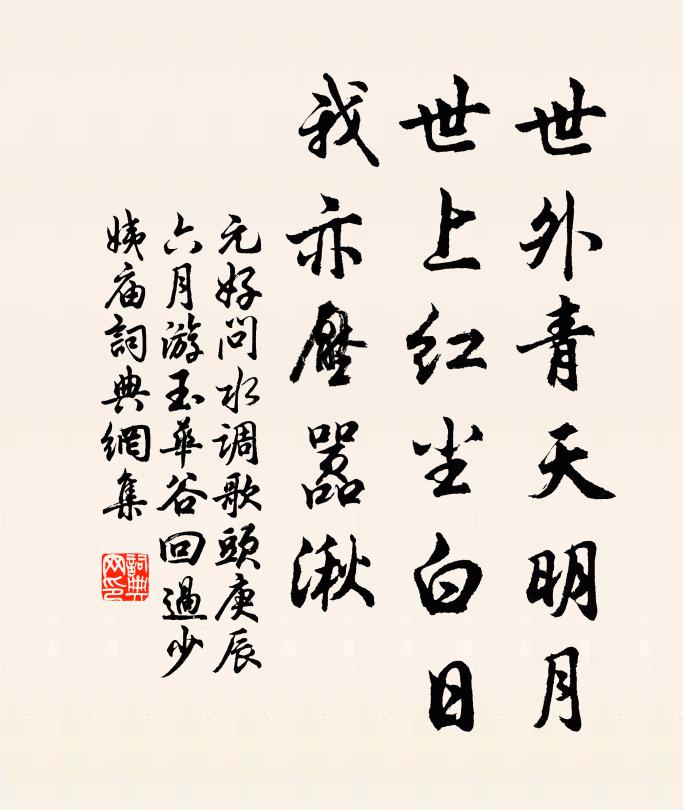 世外青天明月
世上红尘白日
我亦压嚣湫
元好问水调歌頭庚辰
六月游玉華谷回過少
姨庙詞典網集
詞典網印